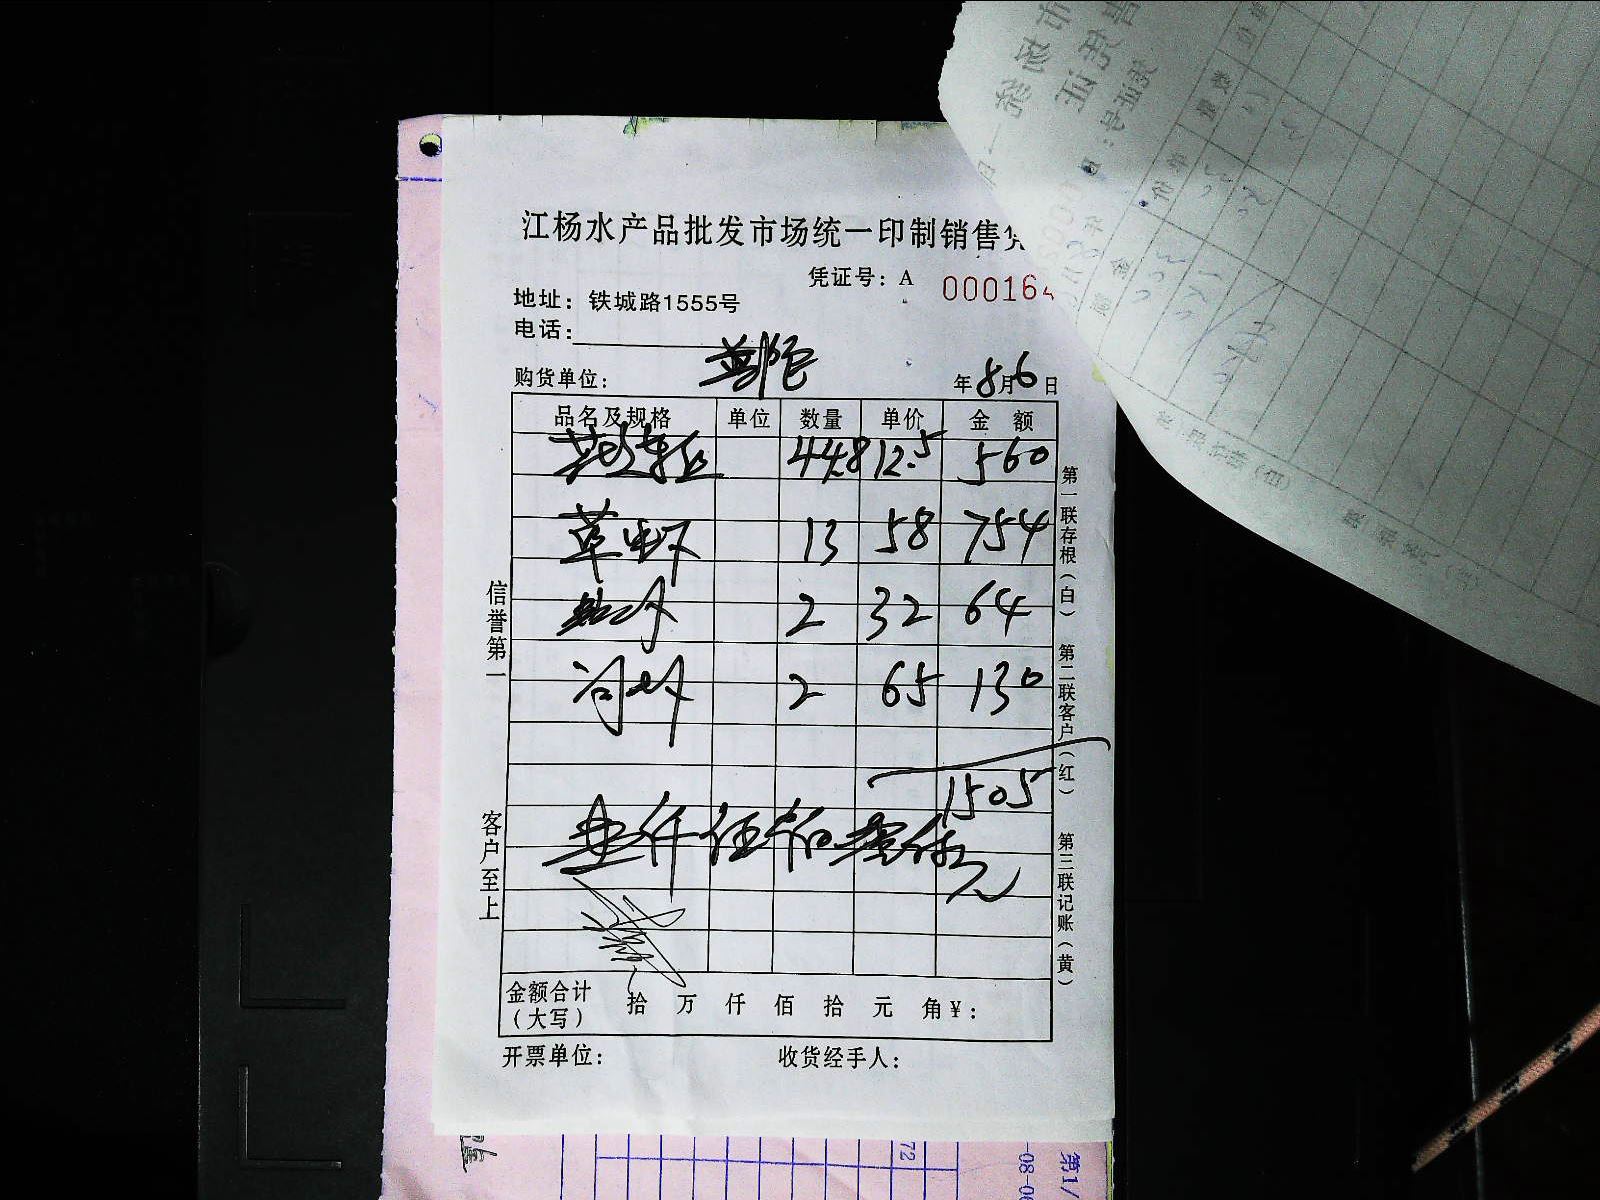 江杨水产品批发市场统一印制销售
凭证号：A 000164
地址：铁城路1555号
电话：
购货单位： 年8月6日
品名及规格 单位 数量 单价 金额
44.8 12.5 560
草虾 13 58 754
2 32 64
河虾 2 65 130
1505
壹仟伍佰零伍元
金额合计（大写） 拾 万 仟 佰 拾 元 角 ¥：
开票单位： 收货经手人：
信誉第一
客户至上
第一联存根（白）
第二联客户（红）
第三联记账（黄）
72
-08-0
第1/